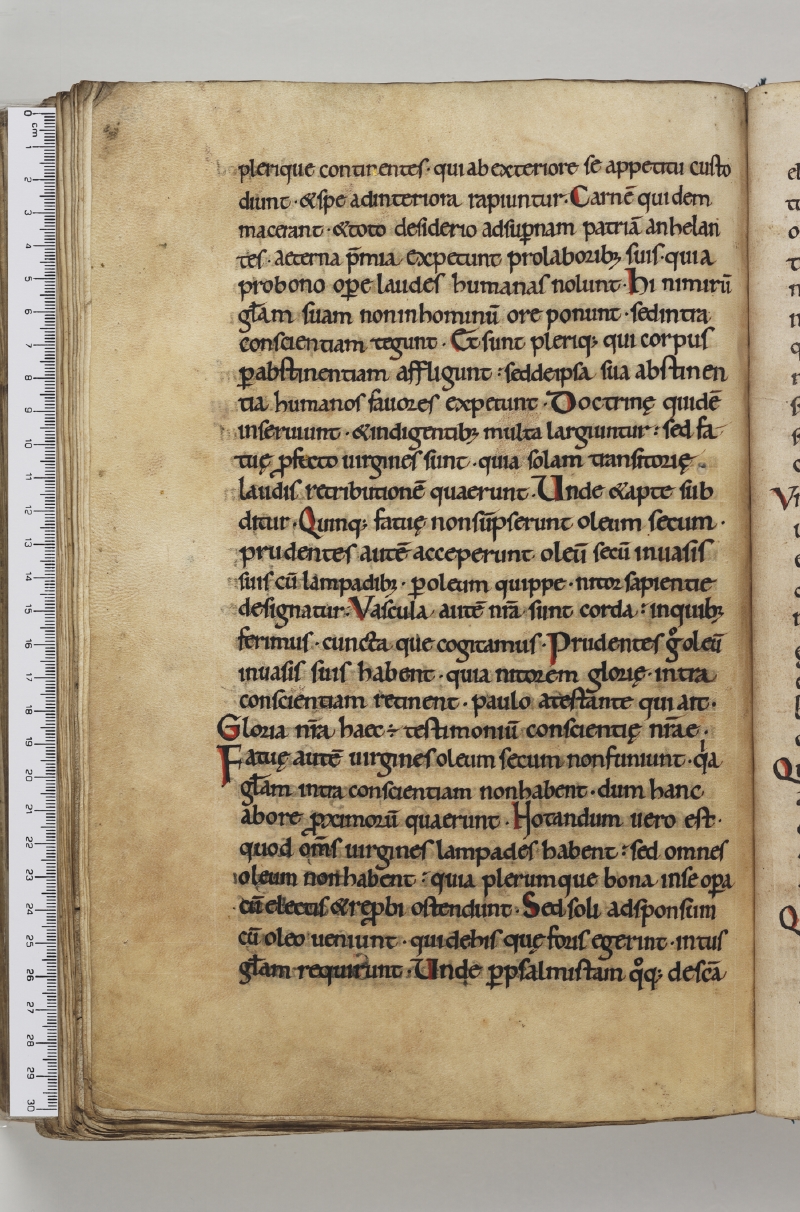 plerique continentes· qui ab exteriore se appetitu custo
diunt · & spe ad interiora rapiuntur· Carnē quidem
macerant· & toto desiderio ad suꝑnam patriā anhelan
tes· aeterna p̄mia expetunt pro laborib; suis· quia
pro bono oꝑe laudes humanas nolunt· Hi nimirū
gl̄am suam non in hominū ore ponunt· sed intra
conscientiam tegunt· Et sunt pleriq; qui corpus
ꝑ abstinentiam affligunt: sed de ipsa sua abstinen
tia humanos fauores expetunt· Doctrinę quidē
inseruiunt· & indigentib; multa largiuntur: sed fa
tuę ꝓfecto uirgines sunt· quia solam transitorię
laudis retributionē quaerunt· Unde & apte sub
ditur· Quinq; fatuę non sūpserunt oleum secum·
prudentes autē acceperunt oleū secū in uasis
suis cū lampadib;· ꝑ oleum quippe· nitor sapientie
designatur· Vascula autē nr̄a sunt corda: in quib;
ferimus· cuncta que cogitamus· Prudentes gͦ oleū
in uasis suis habent· quia nitorem glorię· intra
conscientiam retinent· paulo atestante qui ait·
Gloria nr̄a haec ÷ testimoniū conscientię nr̄ae·
Fatuę autē uirgines oleum secum non sumunt· qͥa
gl̄am intra conscientiam non habent· dum hanc
abore ꝓximorū quaerunt· Notandum uero est·
quod om̄s uirgines lampades habent: sed omnes
oleum non habent: quia plerumque bona in se oꝑa
cū electis & reꝓbi ostendunt· Sed soli ad sponsum
cū oleo ueniunt· qui de his quę foris egerint· intus
gl̄am requirunt· Unde ꝑ psalmistam qͦq; desc̄a